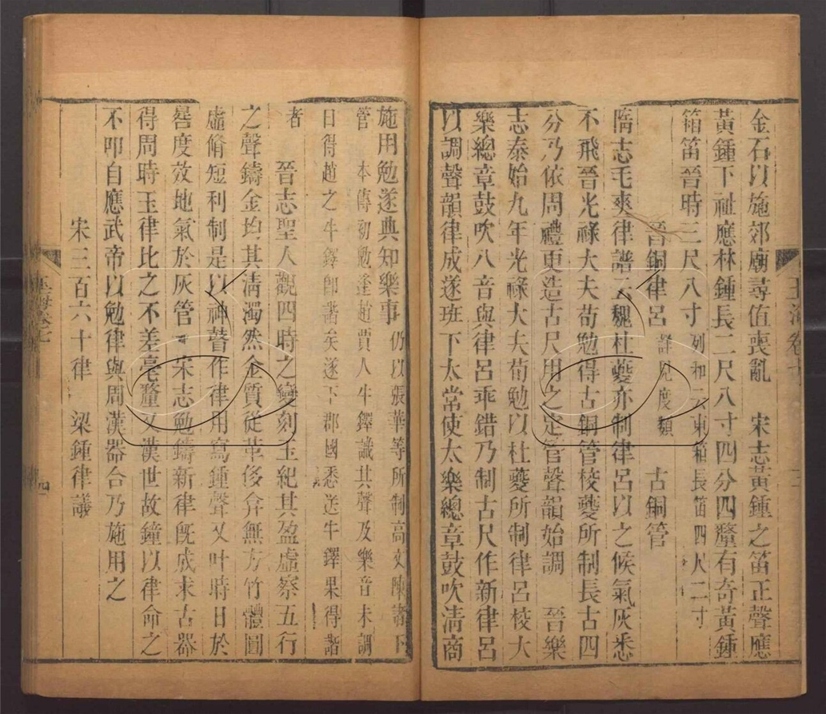 金石以施郊廟尋值喪亂　宋志黃鍾之笛正聲應
黃鍾下祉應林鍾長二尺八寸四分四釐有奇黃鍾
箱笛晉時三尺八寸列和云東箱長笛四尺二寸
晉銅律呂詳見度類　古銅管
隋志毛爽律譜云魏杜夔亦制律呂以之候氣灰悉
不飛晉光祿大夫荀勉得古銅管校夔所制長古四
分乃依周禮更造古尺用之定管聲韻始調　晉樂
志泰始九年光祿大夫荀勉以杜夔所制律呂校大
樂總章鼓吹八音與律呂乖錯乃制古尺作新律呂
以調聲韻律成遂班下太常使太樂總章鼓吹淸商
施用勉遂典知樂事仍以張華等所制高文陳諸下
管　本傳初勉逢趙賈人牛鐸識其聲及樂音未調
曰得趙之牛鐸卽諧矣遂下郡國悉送牛鐸果得諧
者　晉志聖人觀四時之變刻玉紀其盈虛察五行
之聲鑄金均其淸濁然金質從革侈弇無方竹體圓
虛脩短利制是以神瞽作律用寫鍾聲又叶時日於
晷度效地氣於灰管　宋志勉鑄新律旣成求古器
得周時玉律比之不差毫釐又漢世故鐘以律命之
不叩自應武帝以勉律與周漢器合乃施用之
宋三百六十律　梁鍾律議
玉海卷七
四